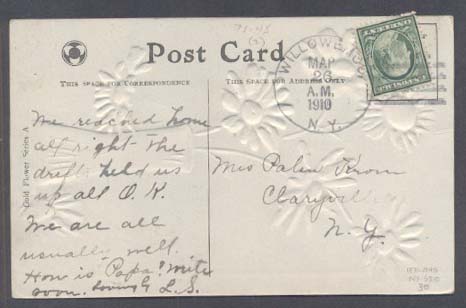 Post Card
THIS SPACE FOR CORRESPONDENCE
THIS SPACE FOR ADDRESS ONLY
WILLOWEMOC
MAR
26
A.M.
1910
N.Y.
Gold Flower Series A
We reached home
all right the
drifts held us
up all O.K.
We are all
usually well.
How is "Papa"? Write
soon. Lovingly L.S.
Miss Palin Krom
Claryville
N.Y.